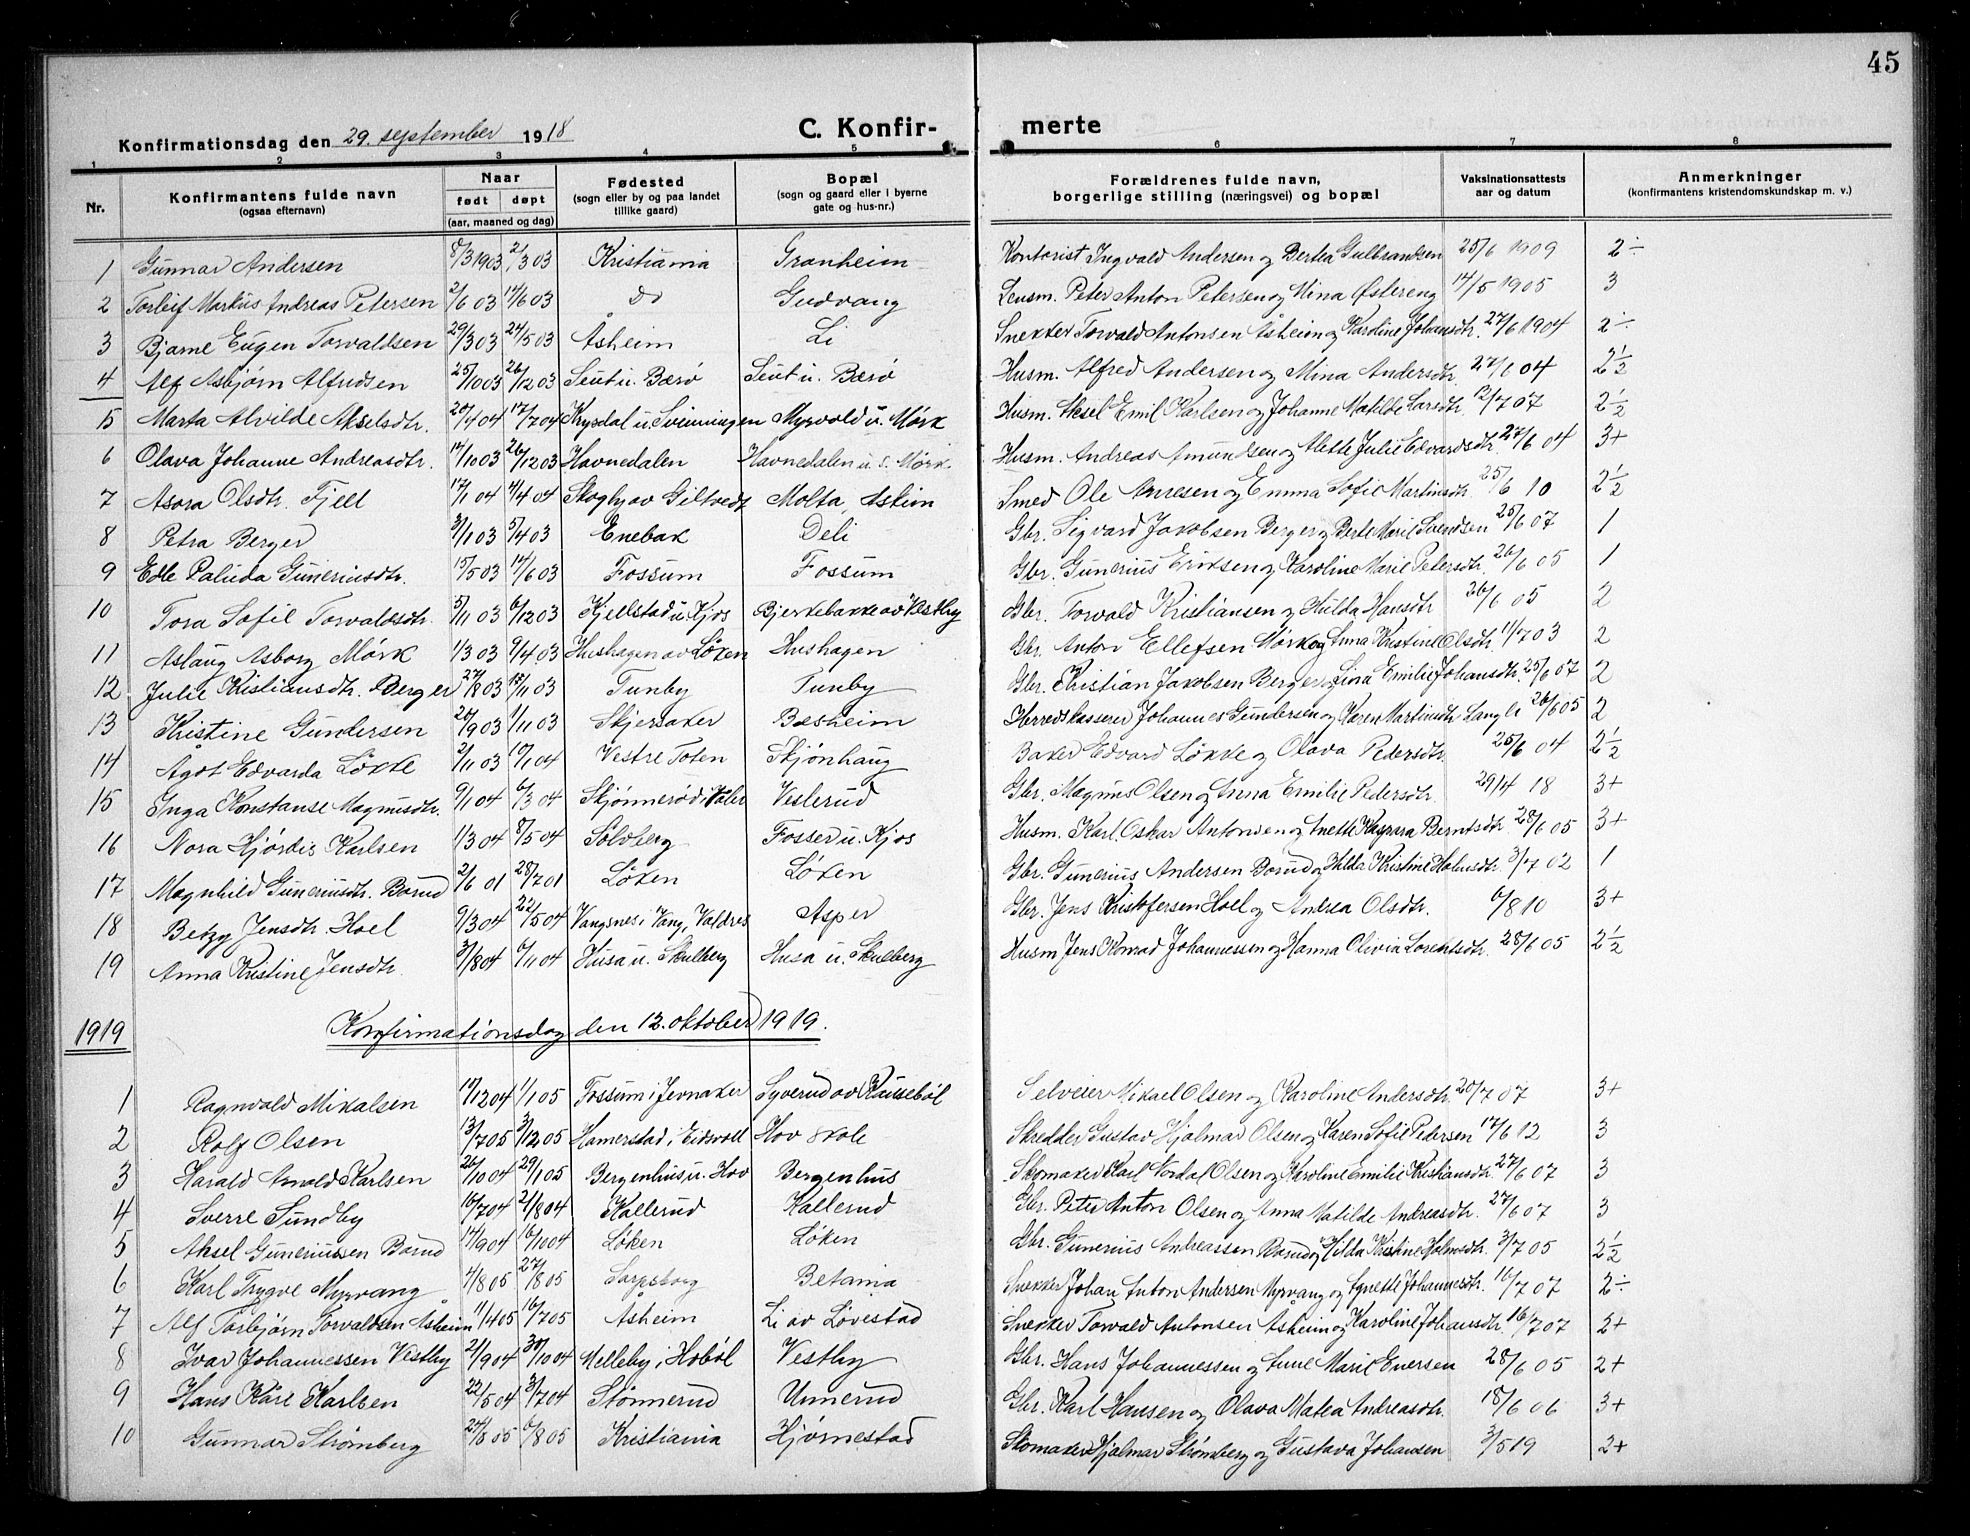 45
Konfirmationsdag den 29. september 1918 C. Konfirmerte
1 2 3 4 5 6 7 8
Nr. Konfirmantens fulde navn (ogsaa efternavn) Naar født døpt (aar, maaned og dag) Fødested (sogn eller by og paa landet tillike gaard) Bopæl (sogn og gaard eller i byerne gate og hus-nr.) Forældrenes fulde navn, borgerlige stilling (næringsvei) og bopæl Vaksinationsattests aar og datum Anmerkninger (konfirmantens kristendomskundskap m. v.)
1 Gunnar Andersen 8/3 1903 2/3 03 Kristiania Granheim Kontorist Ingvald Andersen og Bertea Gulbrandsen 25/6 1909 2÷
2 Torleif Markus Andreas Petersen 2/6 03 14/6 03 Do Gudvang Leusm. Peter Anton Petersen og Mina Østereng 14/5 1905 3
3 Bjarne Eugen Torvaldsen 29/3 03 24/5 03 Åsheim Li Snekker Torvald Antonsen Åsheim og Karoline Johansdtr. 27/6 1904 2÷
4 Alf Asbjørn Alfredsen 25/10 03 26/12 03 Seut u. Bærø Seut u. Bærø Husm. Alfred Andersen og Mina Andersdtr. 27/6 04 2½
5 Marta Alvilde Akselsdtr. 20/4 04 17/7 04 Krysdal u. Svinningen Myrvold u. Mørk Husm. Aksel Emil Karlsen og Johanne Matilde Larsdtr. 12/7 07 2½
6 Olava Johanne Andreasdtr. 14/10 03 26/12 03 Havnedalen Havnedalen u. S. Mørk Husm. Andreas Amundsen og Alette Julie Edvardsdtr. 27/6 04 3+
7 Asora Olsdtr. Fjell 17/1 04 4/4 04 Skogby av Giltvedt Molta, Askim Smed Ole Andresen og Emma Sofie Martinsdtr. 25/6 10 2½
8 Petra Berger 3/1 03 5/4 03 Enebak Deli Gbr. Sigvard Jakobsen Berger og Berte Marie Svendsen 25/6 07 1
9 Edle Palida Guneriusdtr. 15/5 03 14/6 03 Fossum Fossum Gbr. Gunerius Eriksen og Karoline Marie Petersdtr. 26/6 05 1
10 Tora Sofie Torvaldsdtr. 5/11 03 6/12 03 Kjellstad u. Kjos Bjerkebakke av Vestby Gbr. Torvald Kristiansen og Hulda Hansdtr 26/6 05 2
11 Aslaug Asborg Mørk 1/3 03 9/4 03 Hushagen av Løken Hushagen Gbr. Anton Ellefsen Mørk og Anna Kristine Olsdtr. 11/7 03 2
12 Julie Kristiansdtr. Berger 27/8 03 15/11 03 Tunby Tunby Gbr. Kristian Jakobsen Berger og Lina Emilie Johansdtr. 25/6 07 2
13 Kristine Gundersen 20/9 03 1/11 03 Skjersaker Bæsheim Herredskasserer Johannes Gundersen og Karen Martinsdtr Langli 26/6 05 2
14 Ågot Edvarda Løkke 2/11 03 17/1 04 Vestre Toten Skjønhaug Baker Edvard Løkke og Olava Pedersdtr. 25/6 04 2½
15 Inga Konstanse Magnusdtr. 9/1 04 6/3 04 Skjønnerød i Våler Veslerud Gbr. Magnus Olsen og Anna Emilie Pedersdtr. 29/4 18 3+
16 Nora Hjørdis Karlsen 1/3 04 8/5 04 Solvberg Fosser u. Kjos Husm. Karl Oskar Antonsen og Anette Kaspara Berntsdtr. 28/6 05 3+
17 Magnhild Guneriusdtr. Borud 2/6 01 28/7 01 Løken Løken Gbr. Gunerius Andersen Borud og Hilda Kristine Holmsdtr. 3/7 02 1
18 Betzy Jensdtr. Hoel 9/3 04 22/5 04 Vangsnes i Vang, Valdres Asper Gbr. Jens Kristofersen Hoel og Andrea Olsdtr. 6/8 10 3+
19 Anna Kristine Jensdtr. 3/8 04 6/11 04 Husa u. Skulberg Husa u. Skulberg Husm Jens Konrad Johannessen og Hanna Olivia Lorentsdtr. 28/6 05 2½
1919 Konfirmationsdag den 12. oktober 1919.
1 Ragnvald Mikalsen 17/12 04 1/1 05 Fossum i Jevnaker Syverud av Raussebøl Selveier Mikael Olsen og Karoline Andersdtr. 20/7 07 3+
2 Rolf Olsen 13/7 05 3/12 05 Hamerstad i Eidsvoll Hov skole Skredder Gustav Hjalmar Olsen og Karen Sofie Pedersen 17/6 12 3
3 Harald Arnold Karlsen 26/10 04 29/1 05 Bergenhus u. Hov Bergenhus Skomaker Karl Nordal Olsen og Karoline Emilie Kristiansdtr. 27/6 07 3
4 Sverre Sundby 16/7 04 21/8 04 Kallerud Kallerud Gbr. Peter Anton Olsen og Anna Matilde Andreasdtr. 27/6 07 3
5 Aksel Guneriussen Borud 14/9 04 16/10 04 Løken Løken Gbr. Gunerius Andreassen Borud og Hilda Kristine Holmsdtr. 3/7 05 2½
6 Karl Trygve Myrvang 4/8 05 27/8 05 Sarpsborg Betania Snekker Johan Anton Andersen Myrvang og Agnette Johannesdtr. 16/7 07 2÷
7 Alf Torbjørn Torvaldsen Åsheim 11/4 05 16/7 05 Åsheim Li av Løvestad Snekker Torvald Antonsen Åsheim og Karoline Johansdtr. 16/7 07 2+
8 Ivar Johannessen Vestby 21/9 04 30/10 04 Melleby i Hobøl Vestby Gbr. Hans Johannessen og Anne Marie Enersen 28/6 05 2+
9 Hans Kåre Karlsen 22/5 04 3/7 04 Stønnerud Unnerud Gbr. Karl Hansen og Olava Matea Andreasdtr. 18/6 06 3+
10 Gunnar Strømberg 24/3 05 6/8 05 Kristiania Hjørnestad Skomaker Hjalmar Strømberg og Gustava Johansen 3/5 19 2+